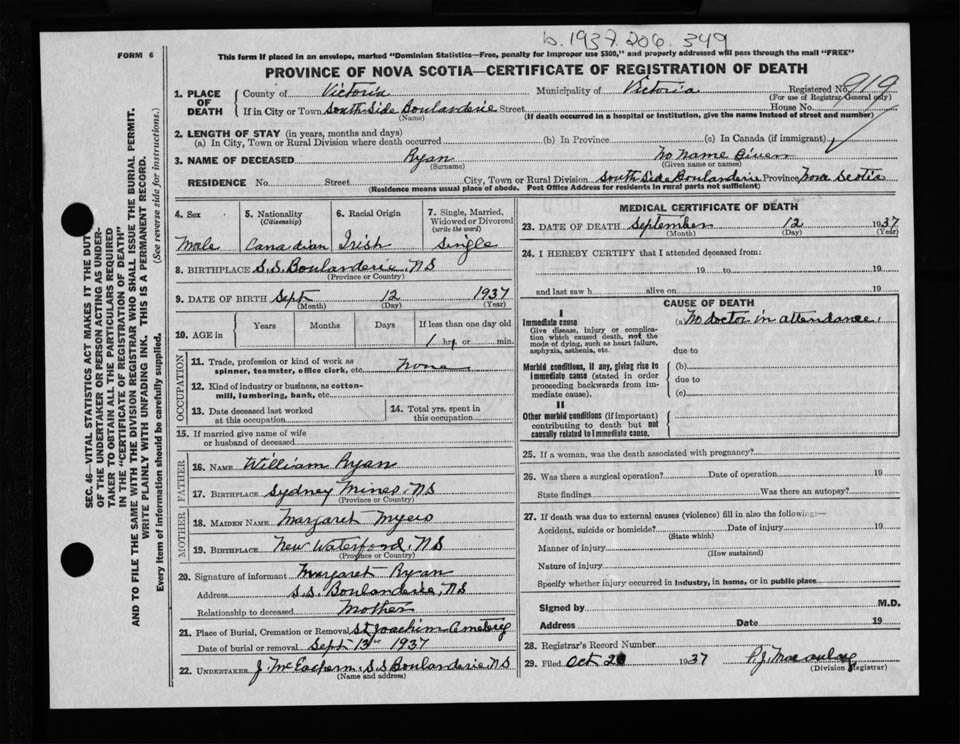 b. 1937. 206. 349
FORM 6
This form if placed in an envelope, marked "Dominion Statistics—Free, penalty for improper use $300," and properly addressed will pass through the mail "FREE"
PROVINCE OF NOVA SCOTIA—CERTIFICATE OF REGISTRATION OF DEATH
SEC. 46—VITAL STATISTICS ACT MAKES IT THE DUTY
OF THE UNDERTAKER OR PERSON ACTING AS UNDER-
TAKER TO OBTAIN ALL THE PARTICULARS REQUIRED
IN THE "CERTIFICATE OF REGISTRATION OF DEATH"
AND TO FILE THE SAME WITH THE DIVISION REGISTRAR WHO SHALL ISSUE THE BURIAL PERMIT.
WRITE PLAINLY WITH UNFADING INK. THIS IS A PERMANENT RECORD.
Every item of information should be carefully supplied. (See reverse side for instructions.)
1. PLACE OF DEATH
County of Victoria Municipality of Victoria Registered No. 919
(For use of Registrar General only)
If in City or Town South Side Boulanderie Street House No.
(Name) (If death occurred in a hospital or institution, give the name instead of street and number)
2. LENGTH OF STAY (in years, months and days)
(a) In City, Town or Rural Division where death occurred (b) In Province (c) In Canada (if immigrant)
3. NAME OF DECEASED Ryan No Name Given
(Surname) (Given name or names)
RESIDENCE No. Street City, Town or Rural Division South Side Boulanderie Province Nova Scotia
(Residence means usual place of abode. Post Office Address for residents in rural parts not sufficient)
4. Sex 5. Nationality 6. Racial Origin 7. Single, Married,
(Citizenship) Widowed or Divorced
(write the word)
Male Canadian Irish Single
8. BIRTHPLACE S.S. Boulanderie, NS
(Province or Country)
9. DATE OF BIRTH Sept 12 1937
(Month) (Day) (Year)
10. AGE in Years Months Days If less than one day old
1 hr. or min.
OCCUPATION
11. Trade, profession or kind of work as
spinner, teamster, office clerk, etc. None
12. Kind of industry or business, as cotton-
mill, lumbering, bank, etc.
13. Date deceased last worked
at this occupation
14. Total yrs. spent in
this occupation
15. If married give name of wife
or husband of deceased
FATHER
16. NAME William Ryan
17. BIRTHPLACE Sydney Mines, NS
(Province or Country)
MOTHER
18. MAIDEN NAME Margaret Myers
19. BIRTHPLACE New Waterford, NS
(Province or Country)
20. Signature of informant Margaret Ryan
Address S.S. Boulanderie, NS
Relationship to deceased Mother
21. Place of Burial, Cremation or Removal St Joachim Cemetery
Date of burial or removal Sept 13th 1937
22. UNDERTAKER J. McEachern, S.S. Boulanderie, NS
(Name and address)
MEDICAL CERTIFICATE OF DEATH
23. DATE OF DEATH September 12 1937
(Month) (Day) (Year)
24. I HEREBY CERTIFY that I attended deceased from:
19 to 19
and last saw h alive on 19
CAUSE OF DEATH
I
Immediate cause (a) No doctor in attendance.
Give disease, injury or complica-
tion which caused death, not the
mode of dying, such as heart failure,
asphyxia, asthenia, etc. due to
Morbid conditions, if any, giving rise to (b)
immediate cause (stated in order due to
proceeding backwards from im-
mediate cause). (c)
II
Other morbid conditions (if important)
contributing to death but not
causally related to immediate cause.
25. If a woman, was the death associated with pregnancy?
26. Was there a surgical operation? Date of operation 19
State findings Was there an autopsy?
27. If death was due to external causes (violence) fill in also the following:—
Accident, suicide or homicide? Date of injury 19
(State which)
Manner of injury
(How sustained)
Nature of injury
Specify whether injury occurred in industry, in home, or in public place
Signed by M.D.
Address Date 19
28. Registrar's Record Number
29. Filed Oct 1937 P.J.
(Division Registrar)